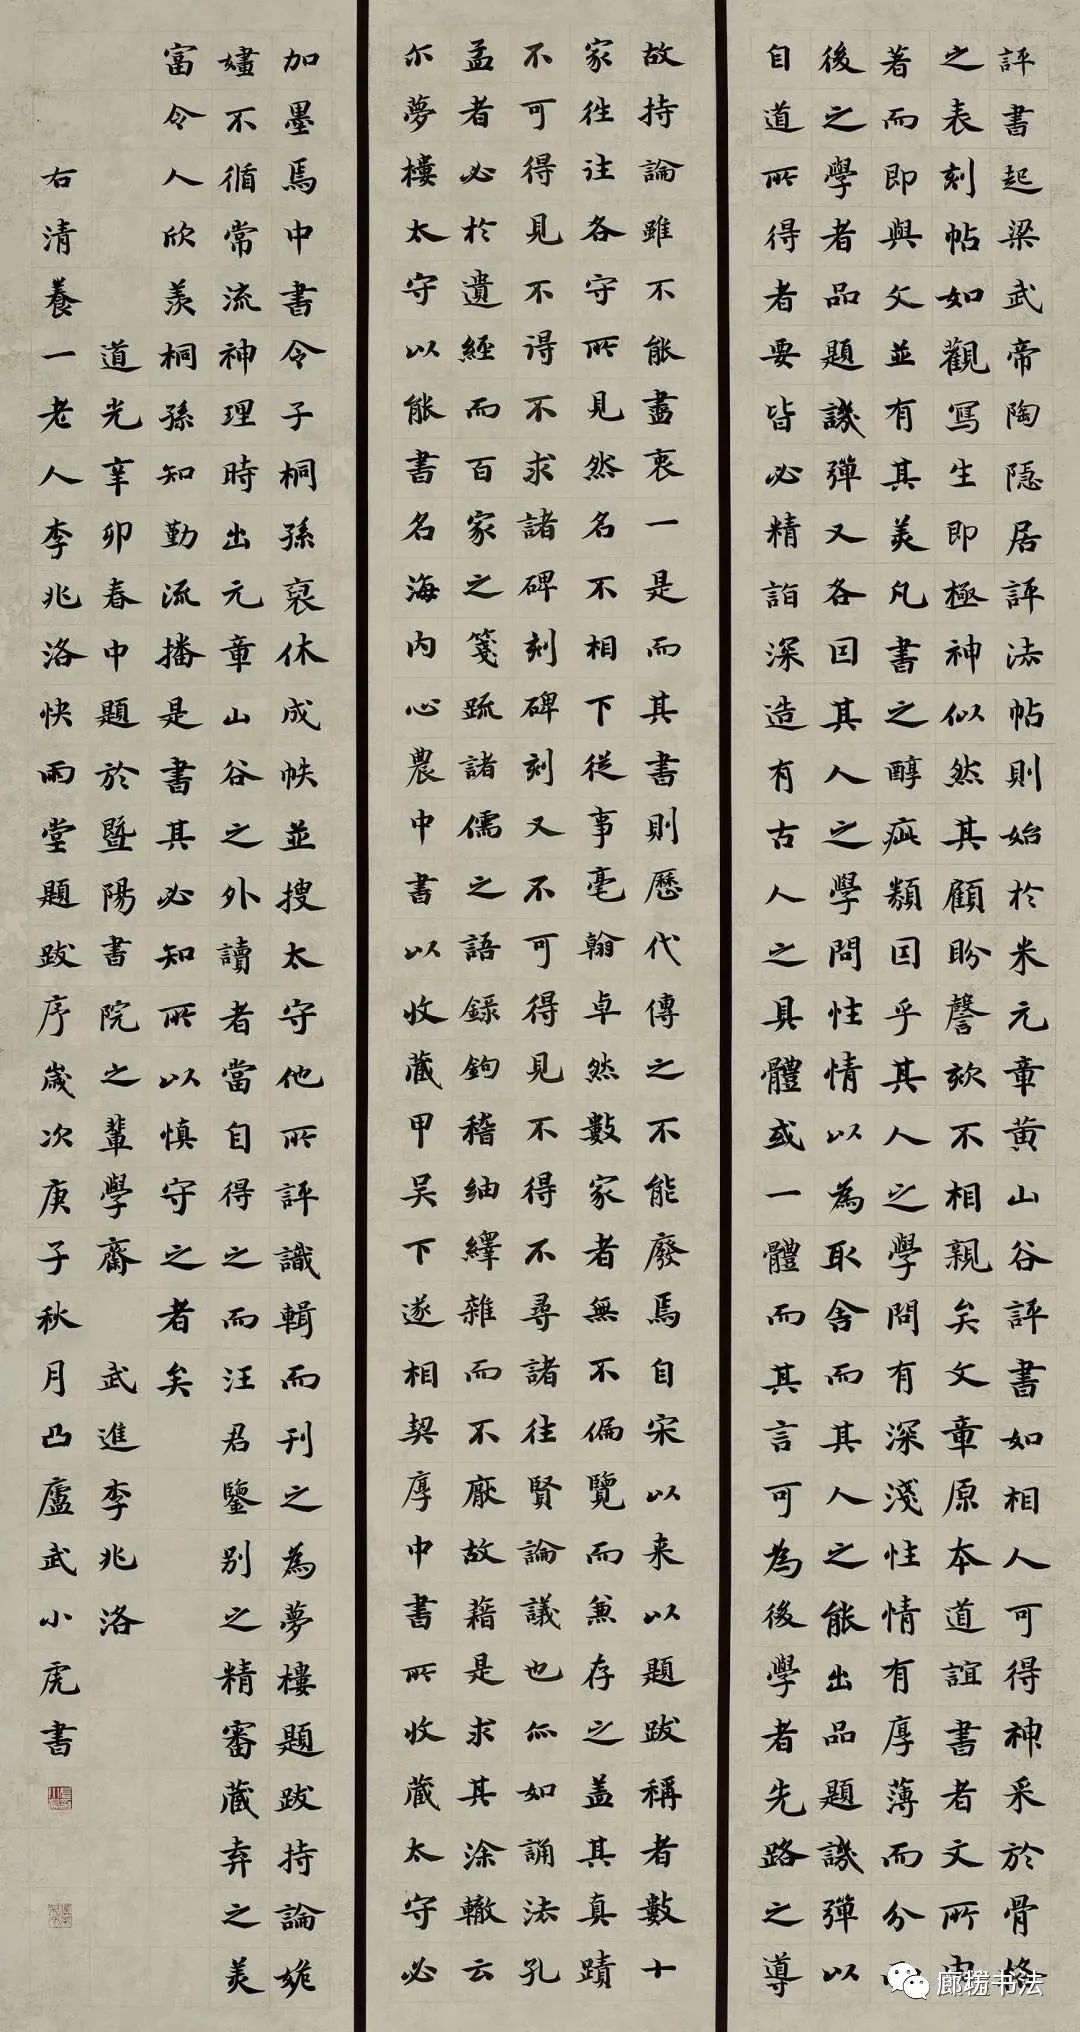 評書起梁武帝陶隱居評法帖則始於米元章黃山谷評書如相人可得神采於骨格
之表刻帖如觀寫生即極神似然其顧盼謦欬不相親矣文章原本道誼書者文所由
著而即與文並有其美凡書之醇疵纇因乎其人之學問有深淺性情有厚薄而分
後之學者品題譏彈又各因其人之學問性情以為取舍而其人之能出品題譏彈以
自道所得者要皆必精詣深造有古人之具體或一體而其言可為後學者先路之導
故持論雖不能盡衷一是而其書則歷代傳之不能廢焉自宋以来以題跋稱者數十
家往往各守所見然名不相下從事毫翰卓然數家者無不偏覽而兼存之盖其真蹟
不可得見不得不求諸碑刻碑刻又不可得見不得不尋諸往賢論議也尒如誦法孔
孟者必於遺經而百家之箋疏諸儒之語錄鉤稽紬繹雜而不厭故藉是求其涂轍云
尒夢樓太守以能書名海内心農中書以收藏甲吴下遂相契厚中書所收藏太守必
加墨焉中書令子桐孫裒休成帙並搜太守他所評識輯而刊之為夢樓題跋持論姽
嫿不循常流神理時出元章山谷之外讀者當自得之而汪君鑒别之精審藏弆之美
富令人欣羨桐孫知勤流播是書其必知所以慎守之者矣
道光辛卯春中題於暨陽書院之輩學齋 武進李兆洛
右清養一老人李兆洛快雨堂題跋序歲次庚子秋月凸廬武小虎書
廊坊书法